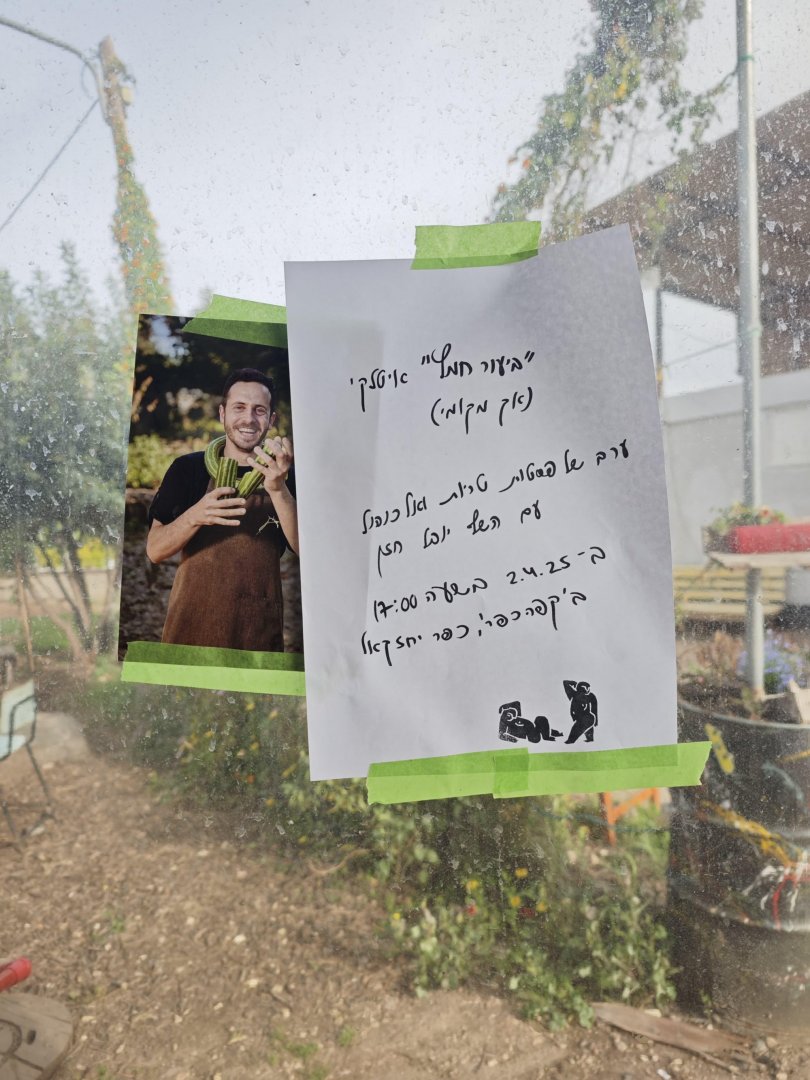 "ביעור חמץ" איטלקי
(אך מקומי)
ערב של פסטות טריות ואלכוהול
עם השף יובל חזן
ב-2.4.25 בשעה 17:00
ב'קפהכפר', כפר יחזקאל